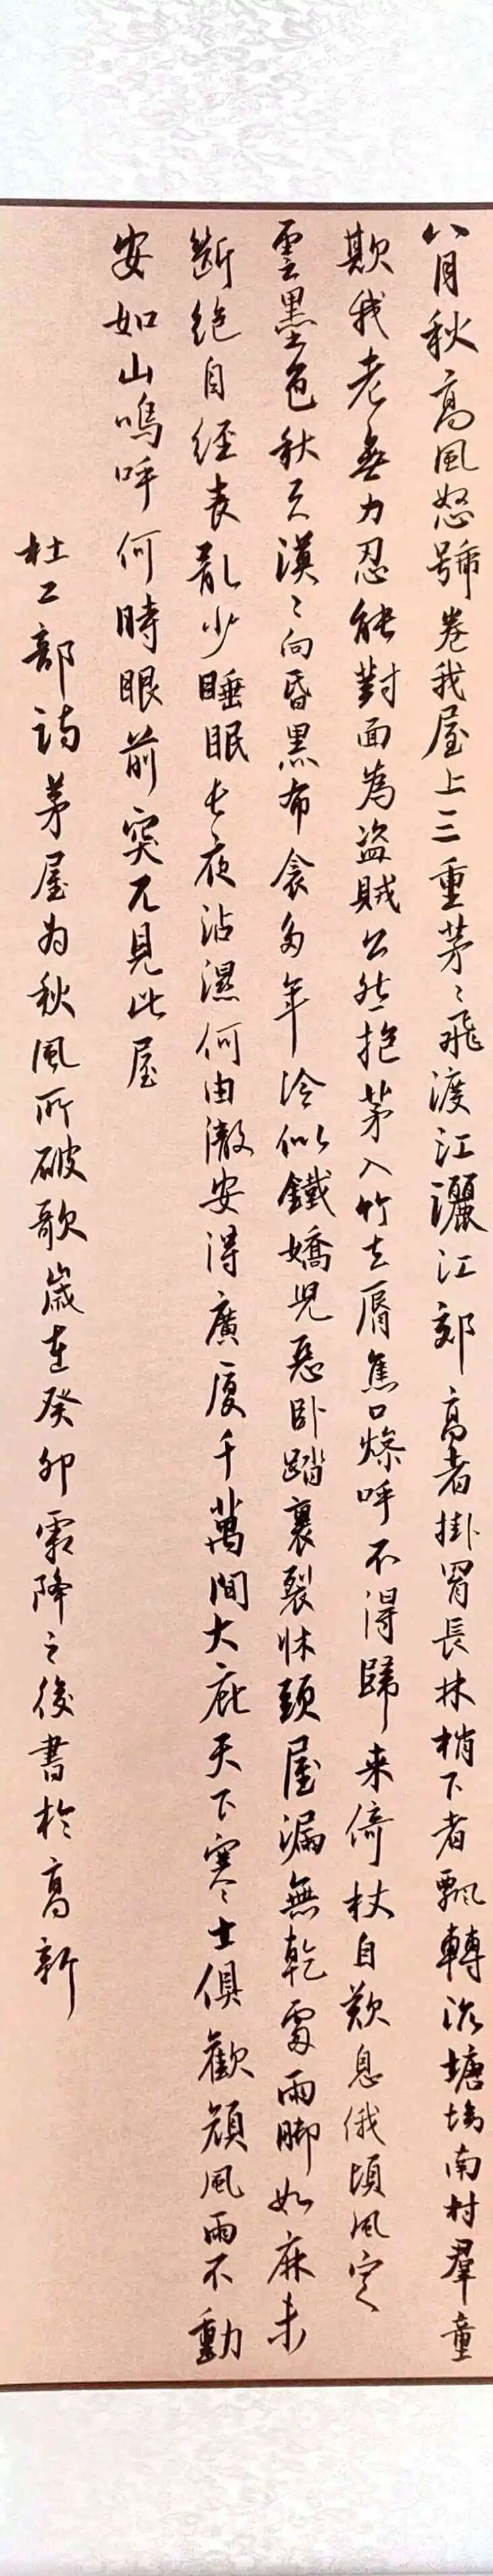 八月秋高風怒號卷我屋上三重茅〻飛渡江灑江郊高者掛罥長林梢下者飄轉沉塘坳南村羣童
欺我老無力忍能對面為盜賊公然抱茅入竹去脣焦口燥呼不得歸来倚杖自歎息俄頃風定
雲墨色秋天漠〻向昏黑布衾多年冷似鐵嬌兒惡卧踏裏裂牀頭屋漏無乾處雨脚如麻未
斷絶自經喪亂少睡眠長夜沾濕何由澈安得廣厦千萬間大庇天下寒士俱歡顔風雨不動
安如山嗚呼何時眼前突兀見此屋
杜工部詩茅屋為秋風所破歌歲在癸卯霜降之後書於高新